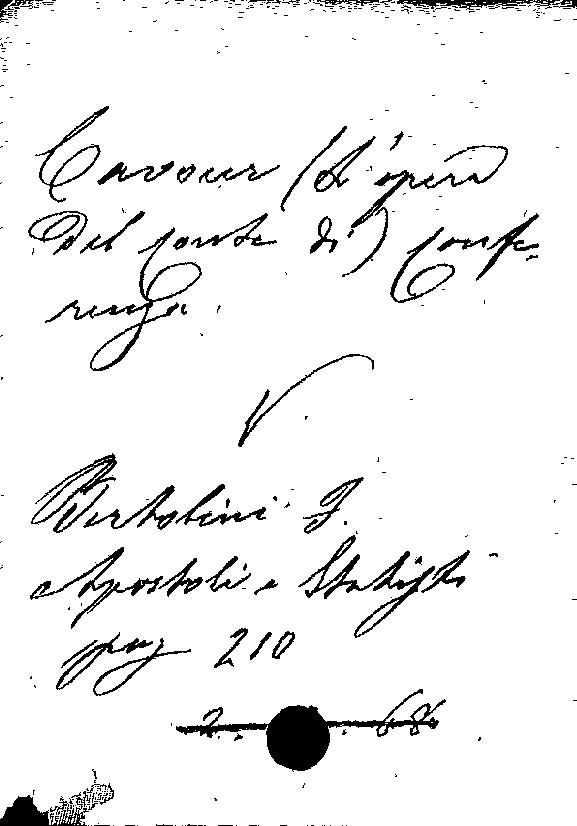 Cavour (L'opera
del conte di) Confe-
renza.
V.
Bertolini F.
Apostoli e Statisti
pag 210